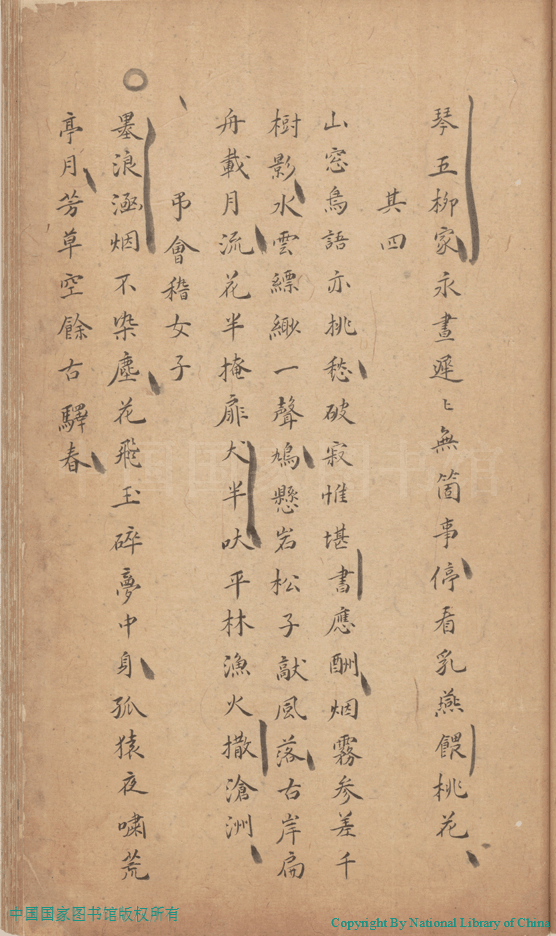 琴五柳家永晝遲〻無箇事停看乳燕餵桃花
其四
山窓鳥語亦挑愁破寂惟堪書應酬烟霧參差千
樹影水雲縹緲一聲鳩懸岩松子敲風落古岸扁
舟載月流花半掩扉犬半吠平林漁火撒滄洲
弔會稽女子
墨浪涵烟不染塵花飛玉碎夢中身孤猿夜嘯荒
亭月芳草空餘古驛春
中国国家图书馆版权所有
Copyright By National Library of China